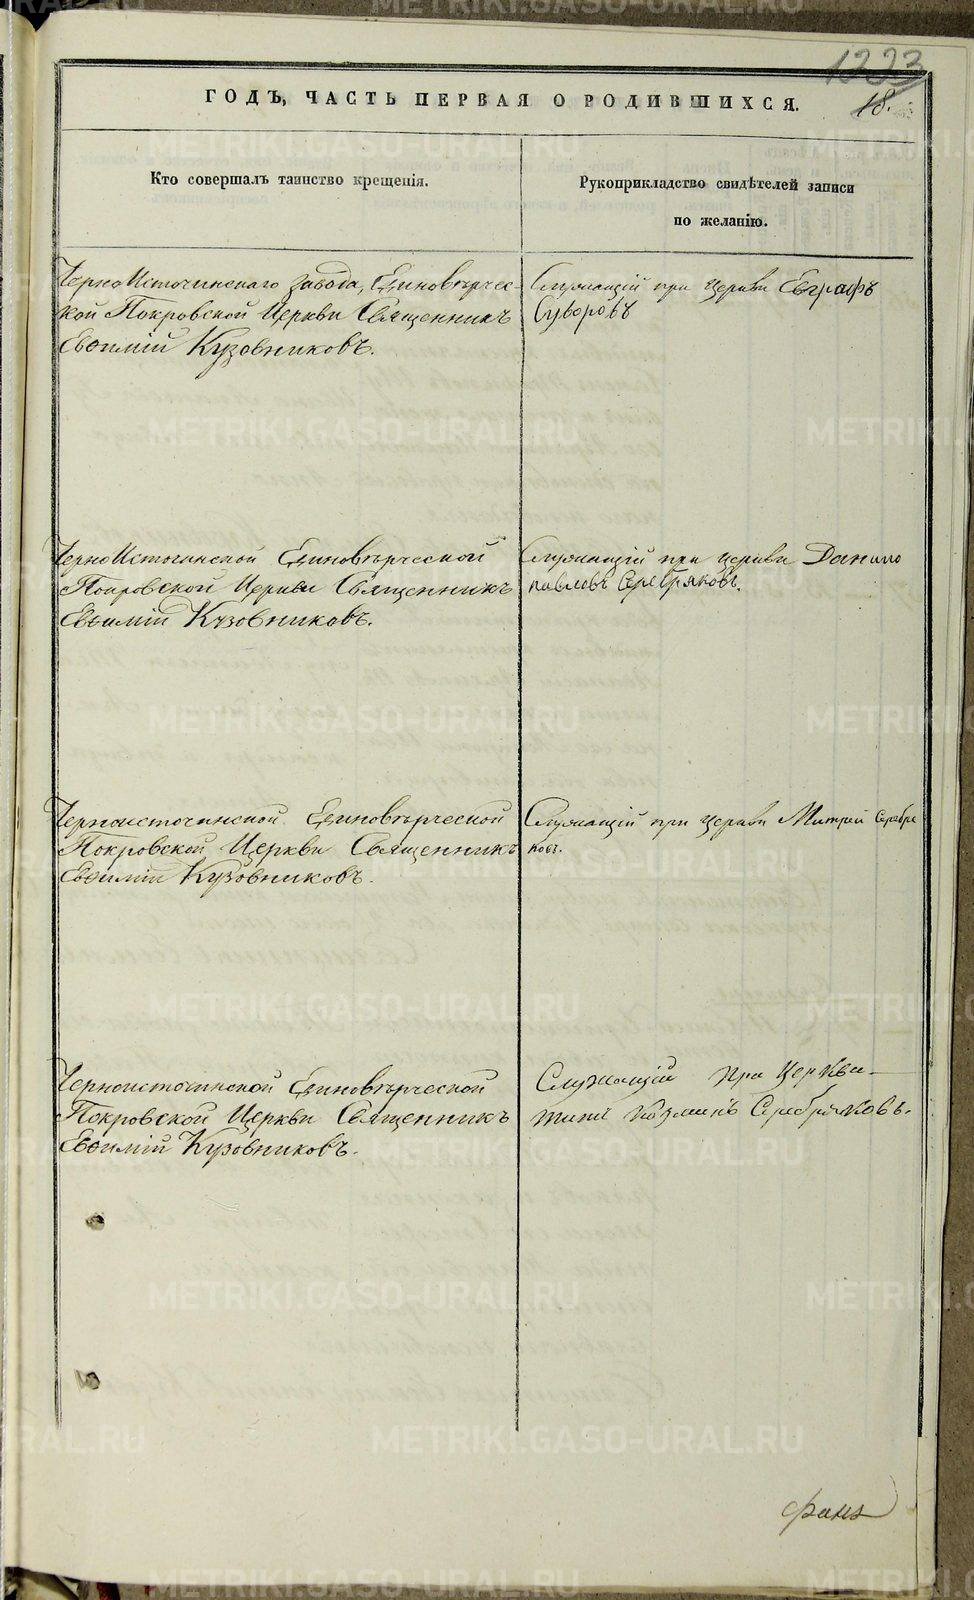 1223
18.
ГОДЪ, ЧАСТЬ ПЕРВАЯ О РОДИВШИХСЯ.
Кто совершалъ таинство крещенія.
Рукоприкладство свидѣтелей записи
по желанію.
ЧерноИсточинского завода, Единовѣрчес-
кой Покровской Церкви Священникъ
Евѳимій Кузовниковъ.
Служащій при церкви Евграфъ
Суворовъ
ЧерноИсточинской Единовѣрческой
Покровской Церкви Священникъ
Евѳимій Кузовниковъ.
Служащій при церкви Данило
павловъ Серебряковъ.
Черноисточинской Единовѣрческой
Покровской Церкви Священникъ
Евѳимій Кузовниковъ.
Служащій при церкви Митрей Серебре
ковъ.
Черноисточинской Единовѣрческой
Покровской Церкви Священникъ
Евѳимій Кузовниковъ.
Служащій при Церкви
Козминъ Серебряковъ.
METRIKI.GASO-URAL.RU